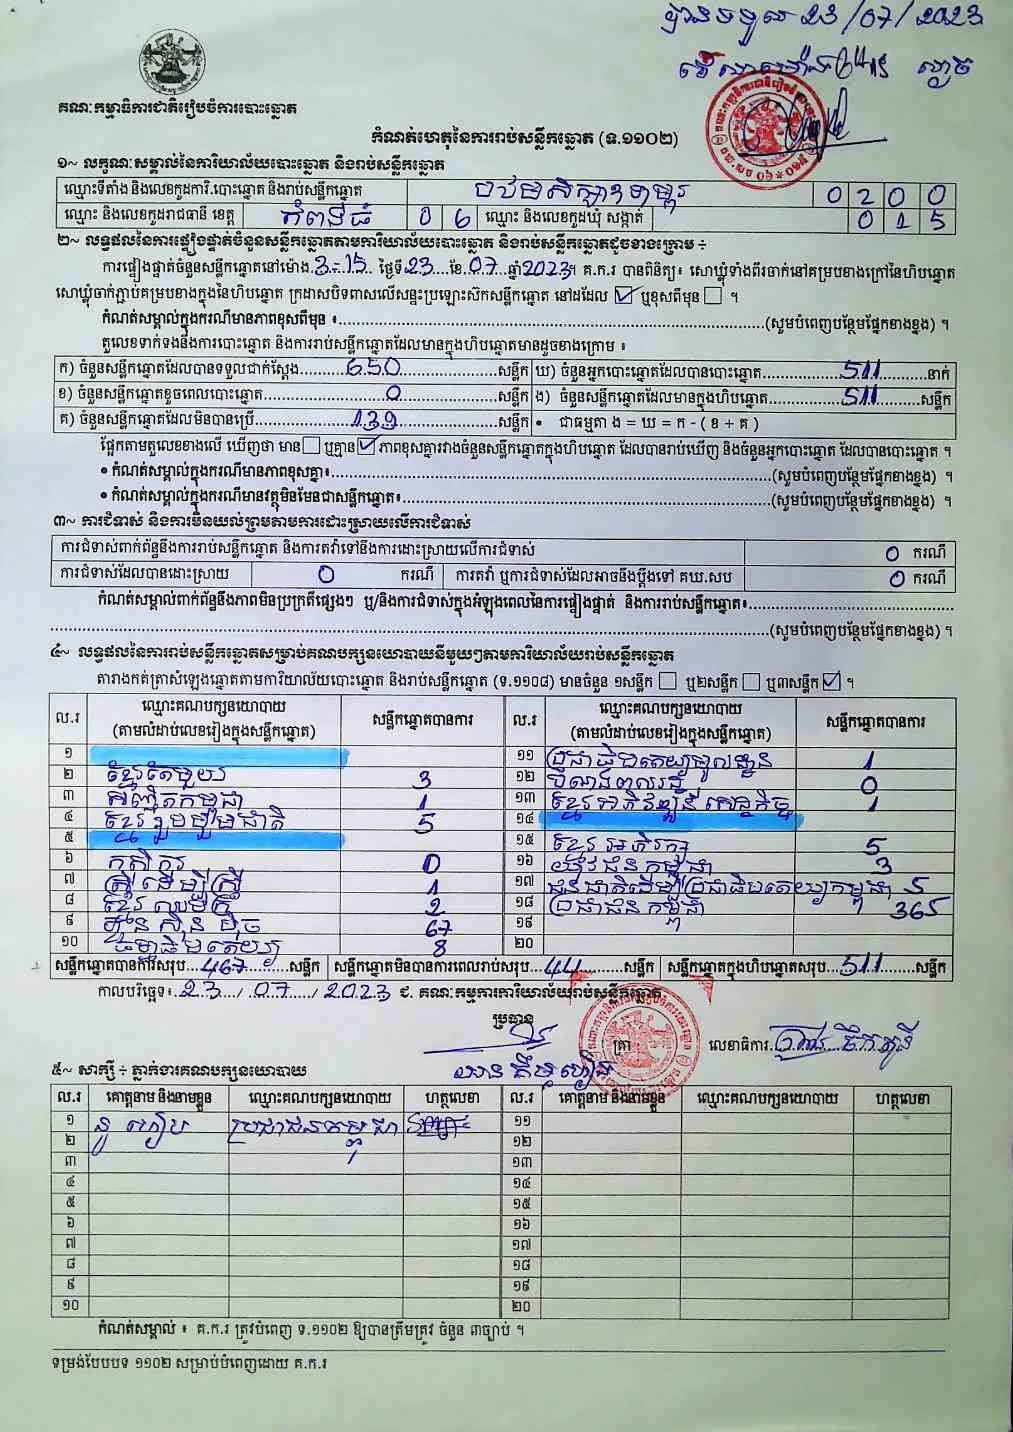 បានទទួល 23/07/2023
វេលាម៉ោង
គណៈកម្មាធិការជាតិរៀបចំការបោះឆ្នោត
កំណត់ហេតុនៃការរាប់សន្លឹកឆ្នោត (ទ.១១០២)
១~ លក្ខណៈសម្គាល់នៃការិយាល័យបោះឆ្នោត និងរាប់សន្លឹកឆ្នោត
ឈ្មោះទីតាំង និងលេខកូដការិ.បោះឆ្នោត និងរាប់សន្លឹកឆ្នោត បឋមសិក្សា 0 2 0 0
ឈ្មោះ និងលេខកូដរាជធានី ខេត្ត កំពង់ធំ 0 6 ឈ្មោះ និងលេខកូដឃុំ សង្កាត់ 0 1 5
២~ លទ្ធផលនៃការផ្ទៀងផ្ទាត់ចំនួនសន្លឹកឆ្នោតតាមការិយាល័យបោះឆ្នោត និងរាប់សន្លឹកឆ្នោតដូចខាងក្រោម ÷
ការផ្ទៀងផ្ទាត់ចំនួនសន្លឹកឆ្នោតនៅម៉ោង 3-15 ថ្ងៃទី 23 ខែ 07 ឆ្នាំ 2023។ គ.ក.រ បានពិនិត្យ៖ សោឃ្លុំទាំងពីរចាក់នៅគម្របខាងក្រៅនៃហិបឆ្នោត
សោឃ្លុំចាក់ភ្ជាប់គម្របខាងក្នុងនៃហិបឆ្នោត ក្រដាសបិទពាសលើសន្ទះប្រឡោះស៊កសន្លឹកឆ្នោត នៅដដែល ☑ ឬខុសពីមុន ☐ ។
កំណត់សម្គាល់ក្នុងករណីមានភាពខុសពីមុន ៖ (សូមបំពេញបន្ថែមផ្នែកខាងខ្នង) ។
តួលេខទាក់ទងនឹងការបោះឆ្នោត និងការរាប់សន្លឹកឆ្នោតដែលមានក្នុងហិបឆ្នោតមានដូចខាងក្រោម ៖
ក) ចំនួនសន្លឹកឆ្នោតដែលបានទទួលជាក់ស្តែង 650 សន្លឹក ឃ) ចំនួនអ្នកបោះឆ្នោតដែលបានបោះឆ្នោត 511 នាក់
ខ) ចំនួនសន្លឹកឆ្នោតខូចពេលបោះឆ្នោត 0 សន្លឹក ង) ចំនួនសន្លឹកឆ្នោតដែលមានក្នុងហិបឆ្នោត 511 សន្លឹក
គ) ចំនួនសន្លឹកឆ្នោតដែលមិនបានប្រើ 139 សន្លឹក • ជាធម្មតា ង = ឃ = ក - ( ខ + គ )
ផ្អែកតាមតួលេខខាងលើ ឃើញថា មាន ☐ ឬគ្មាន ☑ ភាពខុសគ្នារវាងចំនួនសន្លឹកឆ្នោតក្នុងហិបឆ្នោត ដែលបានរាប់ឃើញ និងចំនួនអ្នកបោះឆ្នោត ដែលបានបោះឆ្នោត ។
• កំណត់សម្គាល់ក្នុងករណីមានភាពខុសគ្នា៖ (សូមបំពេញបន្ថែមផ្នែកខាងខ្នង) ។
• កំណត់សម្គាល់ក្នុងករណីមានវត្ថុមិនមែនជាសន្លឹកឆ្នោត៖ (សូមបំពេញបន្ថែមផ្នែកខាងខ្នង) ។
៣~ ការជំទាស់ និងការមិនយល់ព្រមតាមការដោះស្រាយលើការជំទាស់
ការជំទាស់ពាក់ព័ន្ធនឹងការរាប់សន្លឹកឆ្នោត និងការតវ៉ាទៅនឹងការដោះស្រាយលើការជំទាស់ 0 ករណី
ការជំទាស់ដែលបានដោះស្រាយ 0 ករណី ការតវ៉ា ឬការជំទាស់ដែលអាចនឹងប្តឹងទៅ គឃ.សប 0 ករណី
កំណត់សម្គាល់ពាក់ព័ន្ធនឹងភាពមិនប្រក្រតីផ្សេងៗ ឬ/និងការជំទាស់ក្នុងអំឡុងពេលនៃការផ្ទៀងផ្ទាត់ និងការរាប់សន្លឹកឆ្នោត៖
(សូមបំពេញបន្ថែមផ្នែកខាងខ្នង) ។
៤~ លទ្ធផលនៃការរាប់សន្លឹកឆ្នោតសម្រាប់គណបក្សនយោបាយនីមួយៗតាមការិយាល័យរាប់សន្លឹកឆ្នោត
តារាងកត់ត្រាសំឡេងឆ្នោតតាមការិយាល័យបោះឆ្នោត និងរាប់សន្លឹកឆ្នោត (ទ.១១០៨) មានចំនួន ១សន្លឹក ☐ ឬ២សន្លឹក ☐ ឬ៣សន្លឹក ☑ ។
ល.រ ឈ្មោះគណបក្សនយោបាយ (តាមលំដាប់លេខរៀងក្នុងសន្លឹកឆ្នោត) សន្លឹកឆ្នោតបានការ ល.រ ឈ្មោះគណបក្សនយោបាយ (តាមលំដាប់លេខរៀងក្នុងសន្លឹកឆ្នោត) សន្លឹកឆ្នោតបានការ
១ ១១ ប្រជាធិបតេយ្យមូលដ្ឋាន 1
២ ខ្មែរតែមួយ 3 ១២ បំណងពលរដ្ឋ 0
៣ សញ្ជាតិកម្ពុជា 1 ១៣ ខ្មែរអភិវឌ្ឍន៍សេដ្ឋកិច្ច 1
៤ ខ្មែររួបរួមជាតិ 5 ១៤
៥ ១៥ ខ្មែរអភិរក្ស 5
៦ កសិករ 0 ១៦ យុវជនកម្ពុជា 3
៧ ស្ត្រីដើម្បីស្ត្រី 1 ១៧ ជនជាតិដើមប្រជាធិបតេយ្យកម្ពុជា 5
៨ ខ្មែរឈប់ក្រ 2 ១៨ ប្រជាជនកម្ពុជា 365
៩ ហ៊្វុនស៊ិនប៉ិច 67 ១៩
១០ ធម្មាធិបតេយ្យ 8 ២០
សន្លឹកឆ្នោតបានការសរុប 467 សន្លឹក សន្លឹកឆ្នោតមិនបានការពេលរាប់សរុប 44 សន្លឹក សន្លឹកឆ្នោតក្នុងហិបឆ្នោតសរុប 511 សន្លឹក
កាលបរិច្ឆេទ៖ 23 / 07 / 2023 ជ. គណៈកម្មការការិយាល័យរាប់សន្លឹកឆ្នោត
ប្រធាន ត្រា លេខាធិការ
៥~ សាក្សី ÷ ភ្នាក់ងារគណបក្សនយោបាយ
ល.រ គោត្តនាម និងនាមខ្លួន ឈ្មោះគណបក្សនយោបាយ ហត្ថលេខា ល.រ គោត្តនាម និងនាមខ្លួន ឈ្មោះគណបក្សនយោបាយ ហត្ថលេខា
១ នូ ហៀប ប្រជាជនកម្ពុជា ១១
២ ១២
៣ ១៣
៤ ១៤
៥ ១៥
៦ ១៦
៧ ១៧
៨ ១៨
៩ ១៩
១០ ២០
កំណត់សម្គាល់ ៖ គ.ក.រ ត្រូវបំពេញ ទ.១១០២ ឱ្យបានត្រឹមត្រូវ ចំនួន ៣ច្បាប់ ។
ទម្រង់បែបបទ ១១០២ សម្រាប់បំពេញដោយ គ.ក.រ